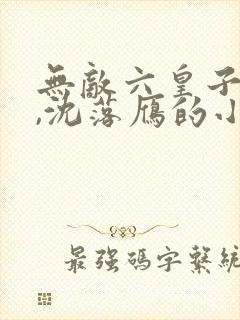 無敵六皇子
,沈落雁的小
最強碼字繫統